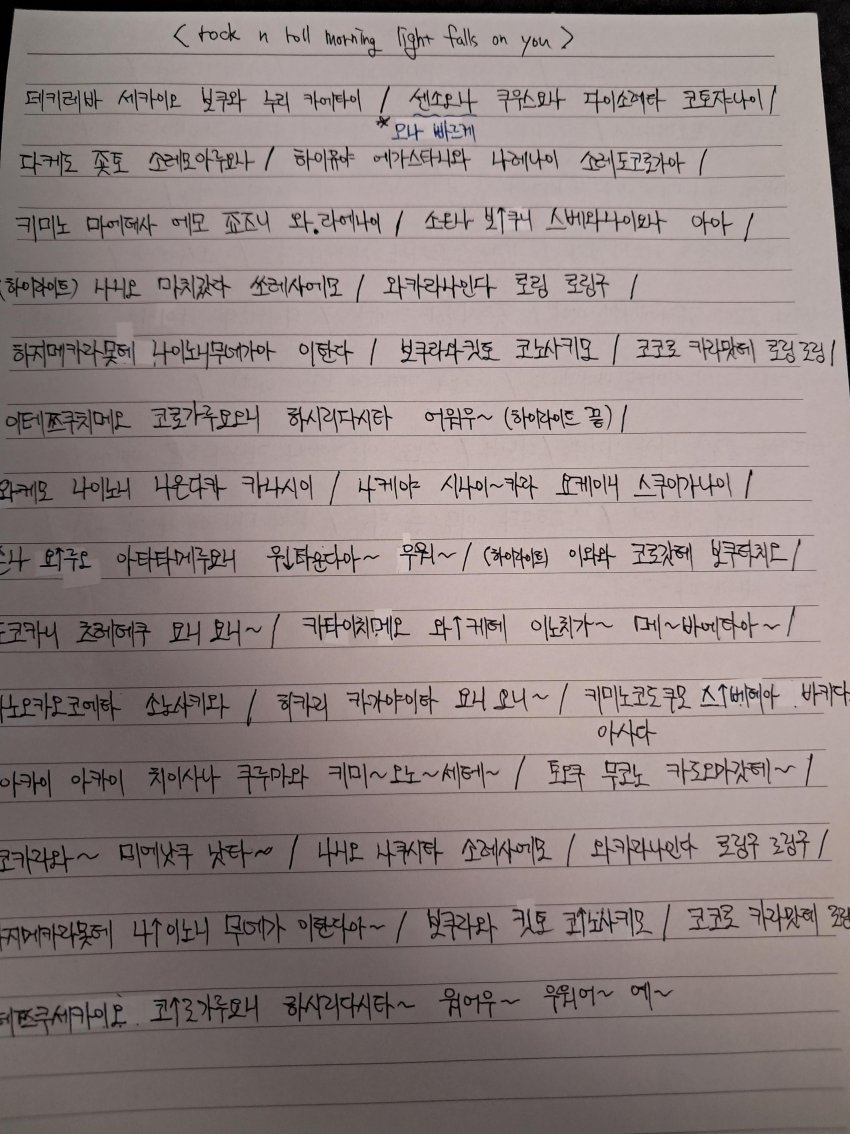 < rock n roll morning light falls on you >
데키레바 세카이오 보쿠와 누리 카에타이 / 센소오나 쿠우스모나 다이소레타 코토쟈나이 /
* 모나 빠르게
다케도 죳토 소레모아루요나 / 하이유야 에가스타니와 나레나이 소레도코로가아 /
키미노 마에데사 에모 죠즈니 와.라에나이 / 소은나 보↑쿠니 스베와나이요나 아아 /
(하이라이트) 나니오 마치갔다 쏘레사에모 / 와카라나인다 로링 로링구 /
하지메카라못테 나이노니무네가아 이탄다 / 보쿠라와킷토 코노사키모 / 코코로 카라맛테 로링 로링 /
이테쯔쿠치메오 코로가루요오니 하시리다시타 어워우~ (하이라이트 끝) /
와케모 나이노니 나은다카 카나시이 / 나케야 시나이~카라 요케이니 스쿠이가나이 /
오↑쿠오 아타타메루요니 우↓타은다아~ 우워~ / (하이라이트) 이와와 코로갓테 보쿠타치오 /
도코카니 츠레테쿠 요니 요니~ / 카타이치메오 와↑케테 이노치가~ 메~바에타아~ /
아노오카오코에타 소노사키와 / 히카리 카가야이타 요니 오니~ / 키미노코도쿠모 스↑베테아 바키다
아사다
아카이 아카이 치이사나 쿠루마와 키미~오노~세테~ / 토오쿠 무코노 카도오마갓테~ /
코카라와~ 미에낫쿠 낫타~ / 나니오 나쿠시타 소레사에모 / 와카라나인다 로링구 로링구 /
지메카라못테 나↑이노니 무네가 이탄다아~ / 보쿠라와 킷토 코↑노사키모 / 코코로 카라맛테 로링
테쯔쿠세카이오 코↑로가루요니 하시리다시타~ 워어우~ 우워어~ 예~